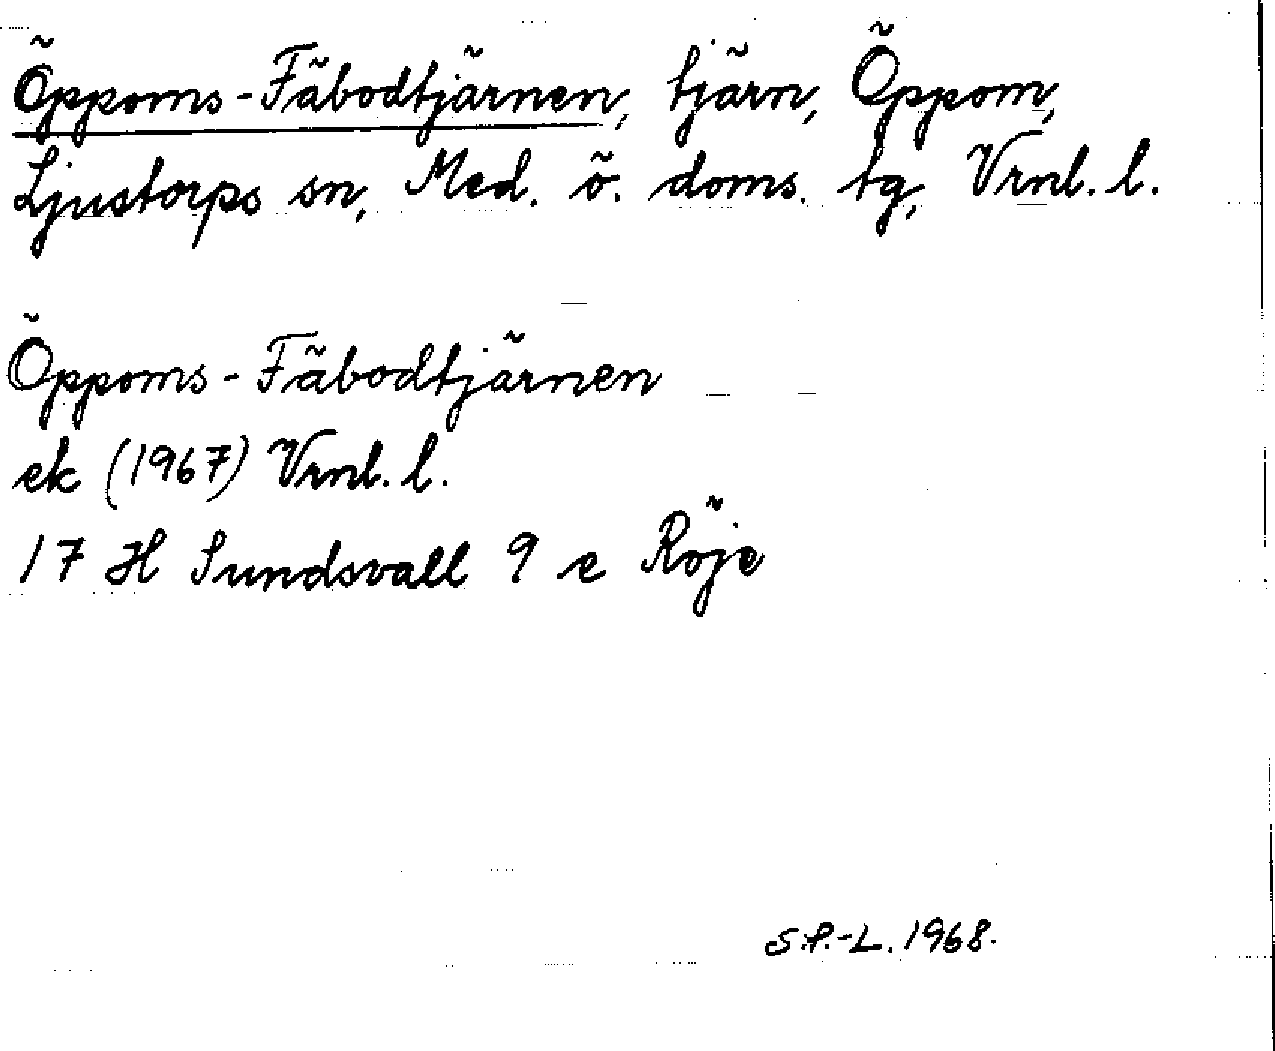 Öppoms-Fäbodtjärnen, tjärn, Öppom,
Ljustorps sn, Med. ö. doms. tg, Vrnl. l.
Öppoms-Fäbodtjärnen
ek (1967) Vrnl. l.
17 H Sundsvall 9 e Röje
S.P.-L. 1968.